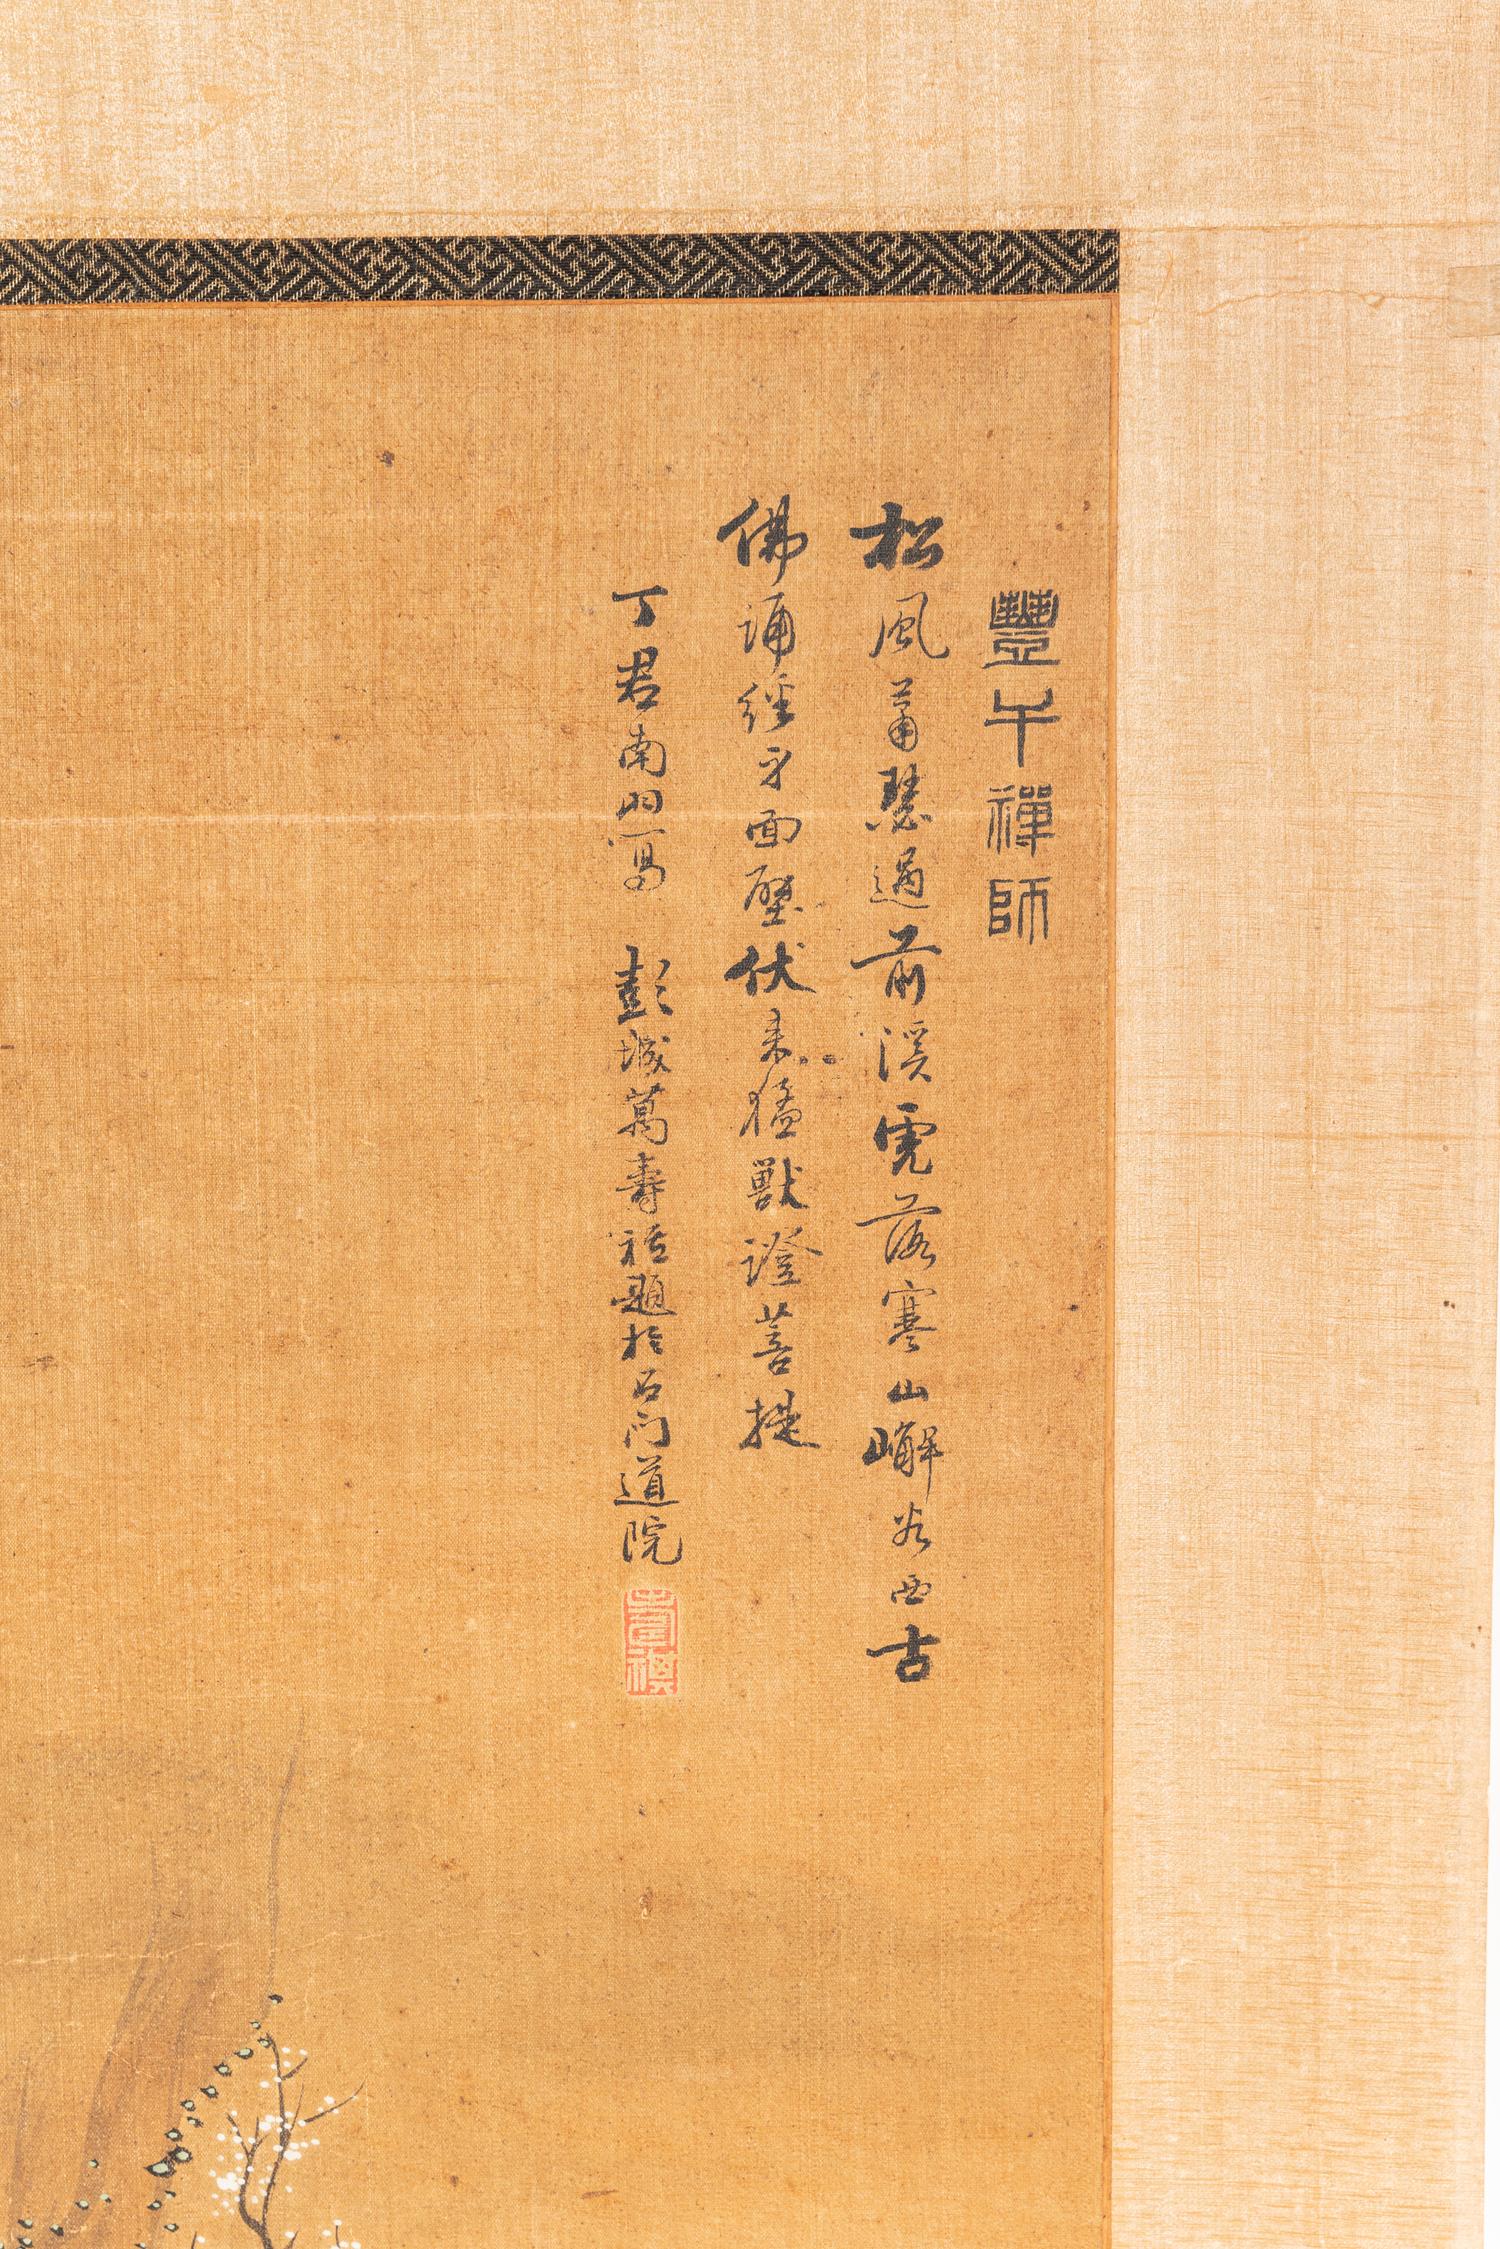 豐干禪師
松風蕭瑟過前溪虎落寒山嶰谷西古
佛誦經面壁伏來猛獸證菩提
丁君南羽寫 彭城萬壽祺題於石門道院
壽祺